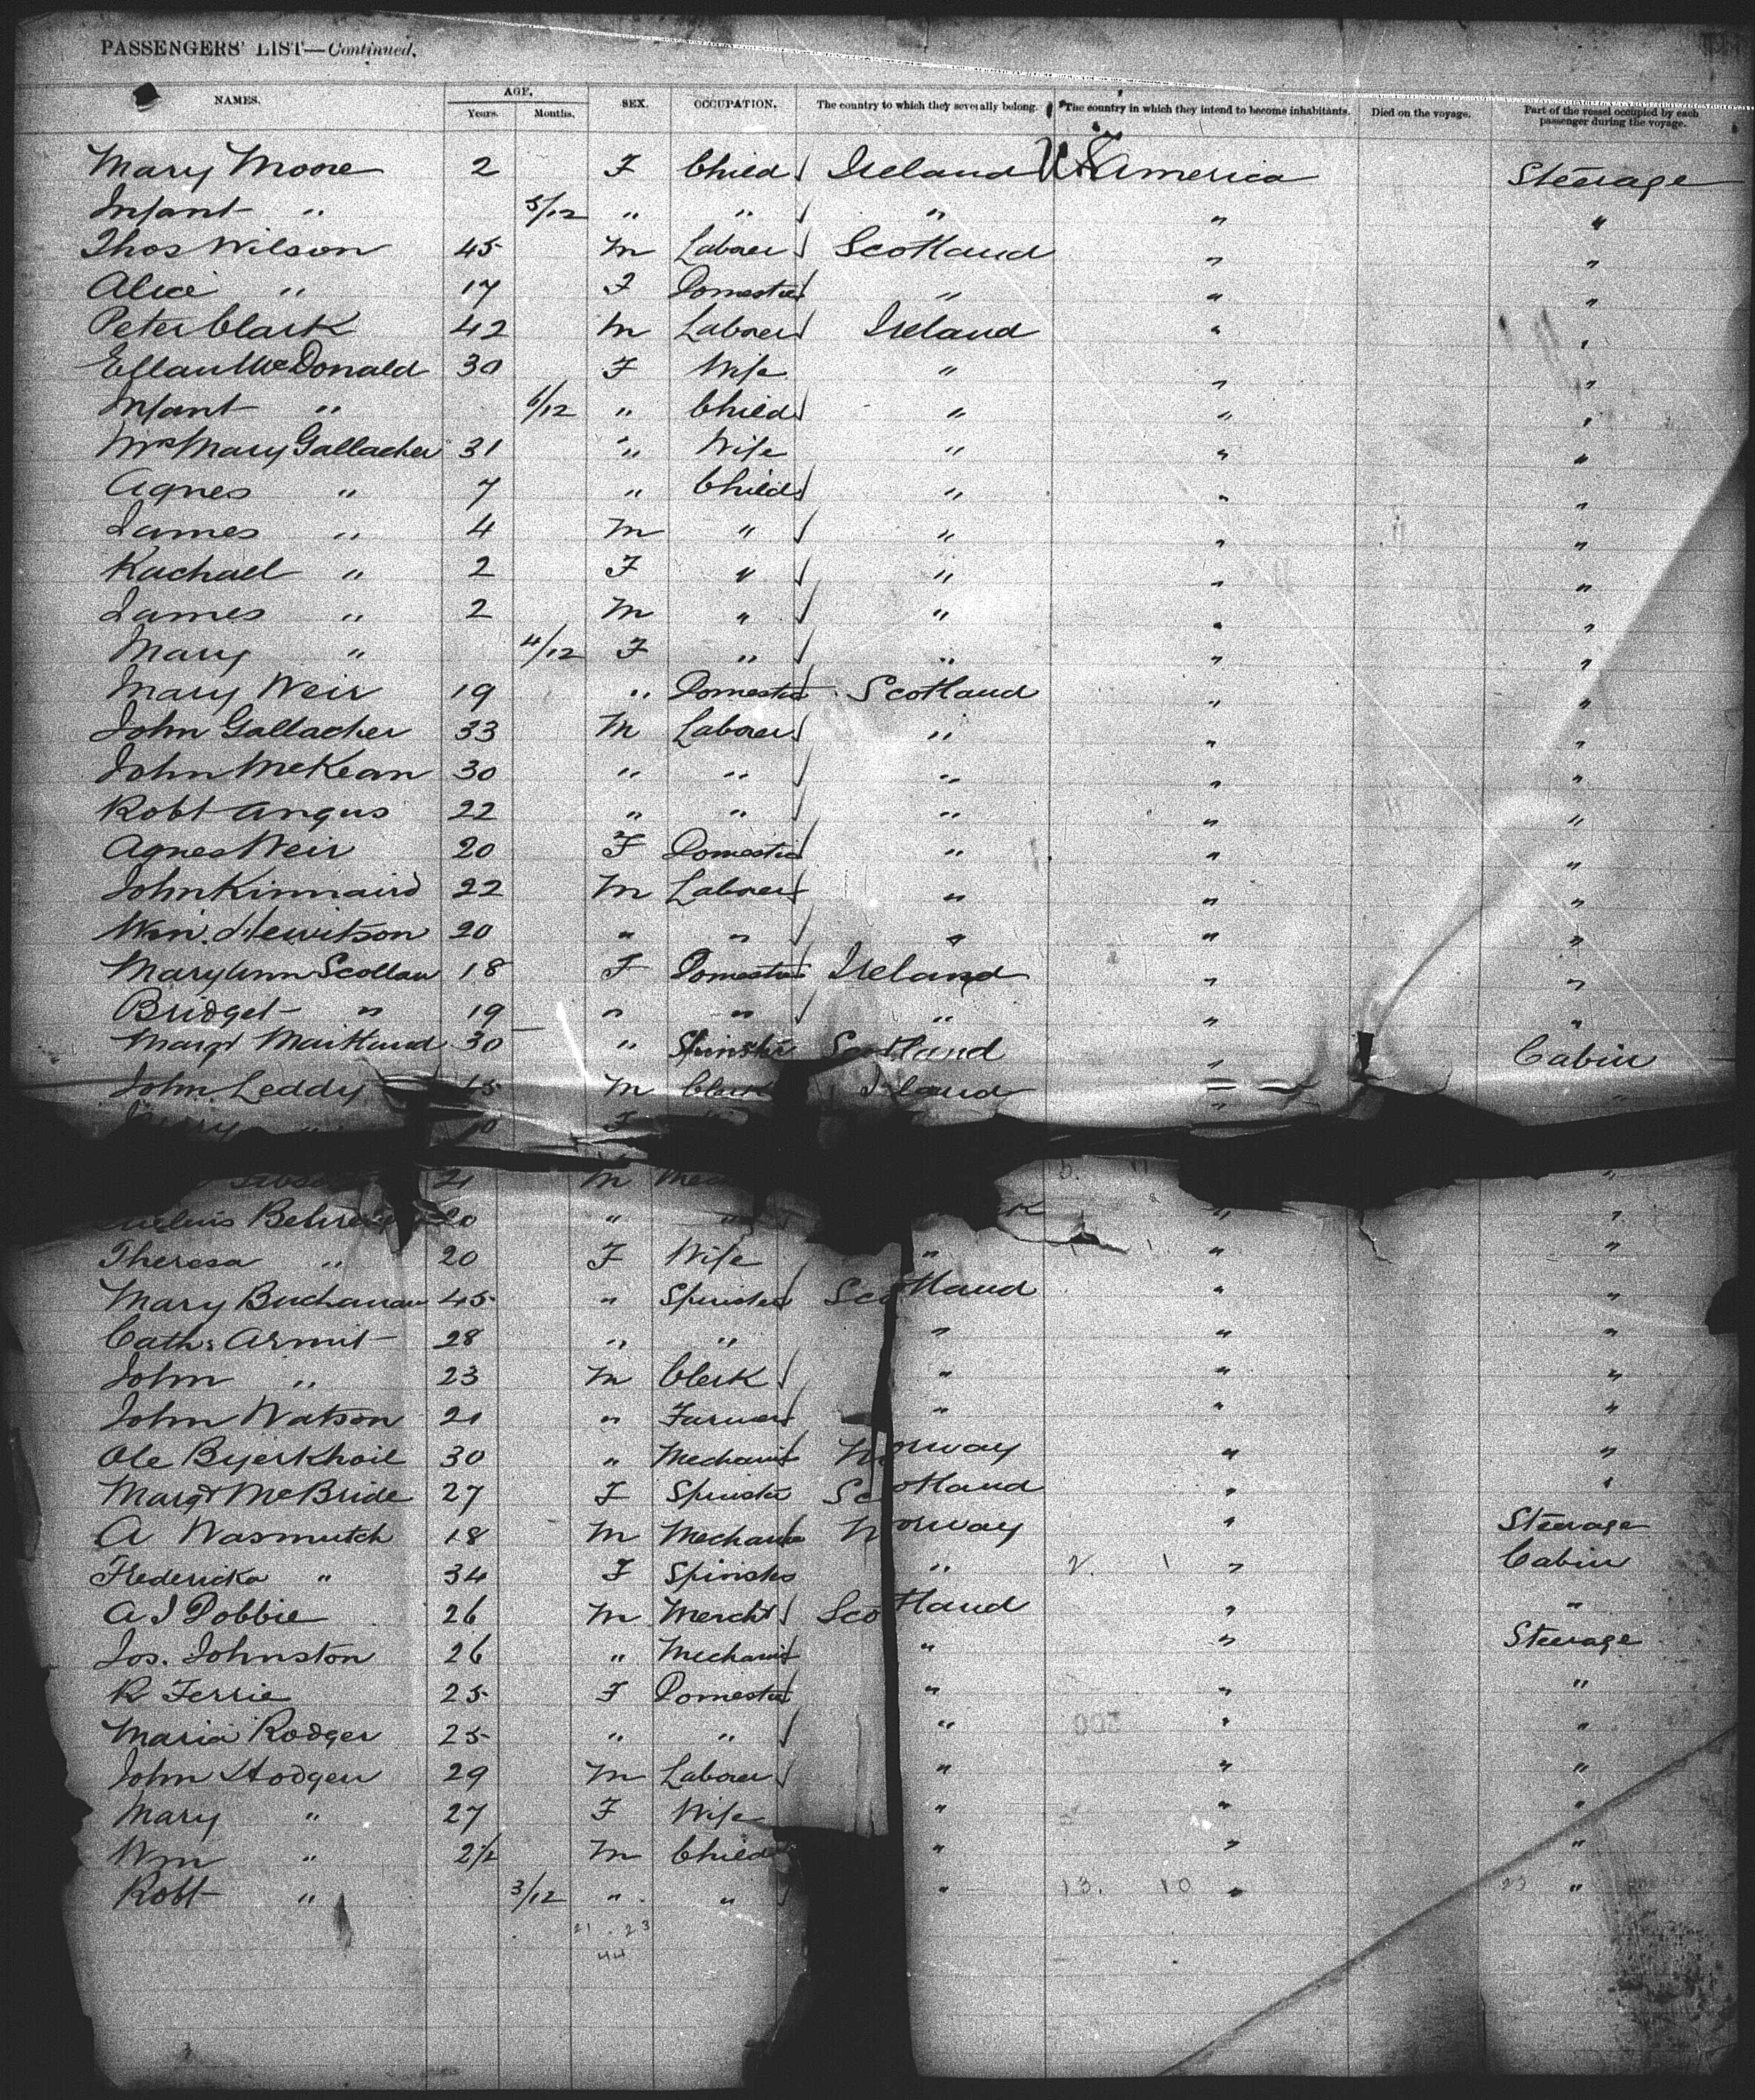 PASSENGERS' LIST—Continued.
NAMES. AGE. Years. Months. SEX. OCCUPATION. The country to which they severally belong. The country in which they intend to become inhabitants. Died on the voyage. Part of the vessel occupied by each passenger during the voyage.
Mary Moore 2 F Child Ireland U S America Steerage
Infant " 5/12 " " " " "
Thos Wilson 45 M Laborer Scotland " "
Alice " 17 F Domestic " " "
Peter Clark 42 M Laborer Ireland " "
Ellan McDonald 30 F Wife " " "
Infant " 6/12 " Child " " "
Mrs Mary Gallacher 31 " Wife " " "
Agnes " 7 " Child " " "
James " 4 M " " " "
Rachael " 2 F " " " "
James " 2 M " " " "
Mary " 4/12 F " " " "
Mary Weir 19 " Domestic Scotland " "
John Gallacher 33 M Laborer " " "
John McKean 30 " " " " "
Robt Angus 22 " " " " "
Agnes Weir 20 F Domestic " " "
John Kinnaird 22 M Laborer " " "
Wm. Hewitson 20 " " " " "
Mary Ann Scollan 18 F Domestic Ireland " "
Bridget " 19 " " " " "
Margt Maitland 30 " Spinster Scotland " Cabin
John Leddy M Clerk " "
" F
M "
Behre 20 " " " "
Theresa " 20 F Wife " " "
Mary Buchanan 45 " Spinster Scotland " "
Cath: Armit 28 " " " " "
John " 23 M Clerk " " "
John Watson 21 " Farmer " " "
Ole Byerkhoil 30 " Mechanic Norway " "
Margt McBride 27 F Spinster Scotland " "
A Wasmutch 18 M Mechanic Norway " Steerage
Fredericka " 34 F Spinster " 2. 1 " Cabin
A J Dobbie 26 M Mercht Scotland " "
Jos. Johnston 26 " Mechanic " " Steerage
R Ferrie 25 F Domestic " " "
Maria Rodger 25 " " " " "
John Hodgen 29 M Laborer " " "
Mary " 27 F Wife " " "
Wm " 2 1/2 M Child " " "
Robt " 3/12 " " " 13. 10 " 23 "
21 . 23
44